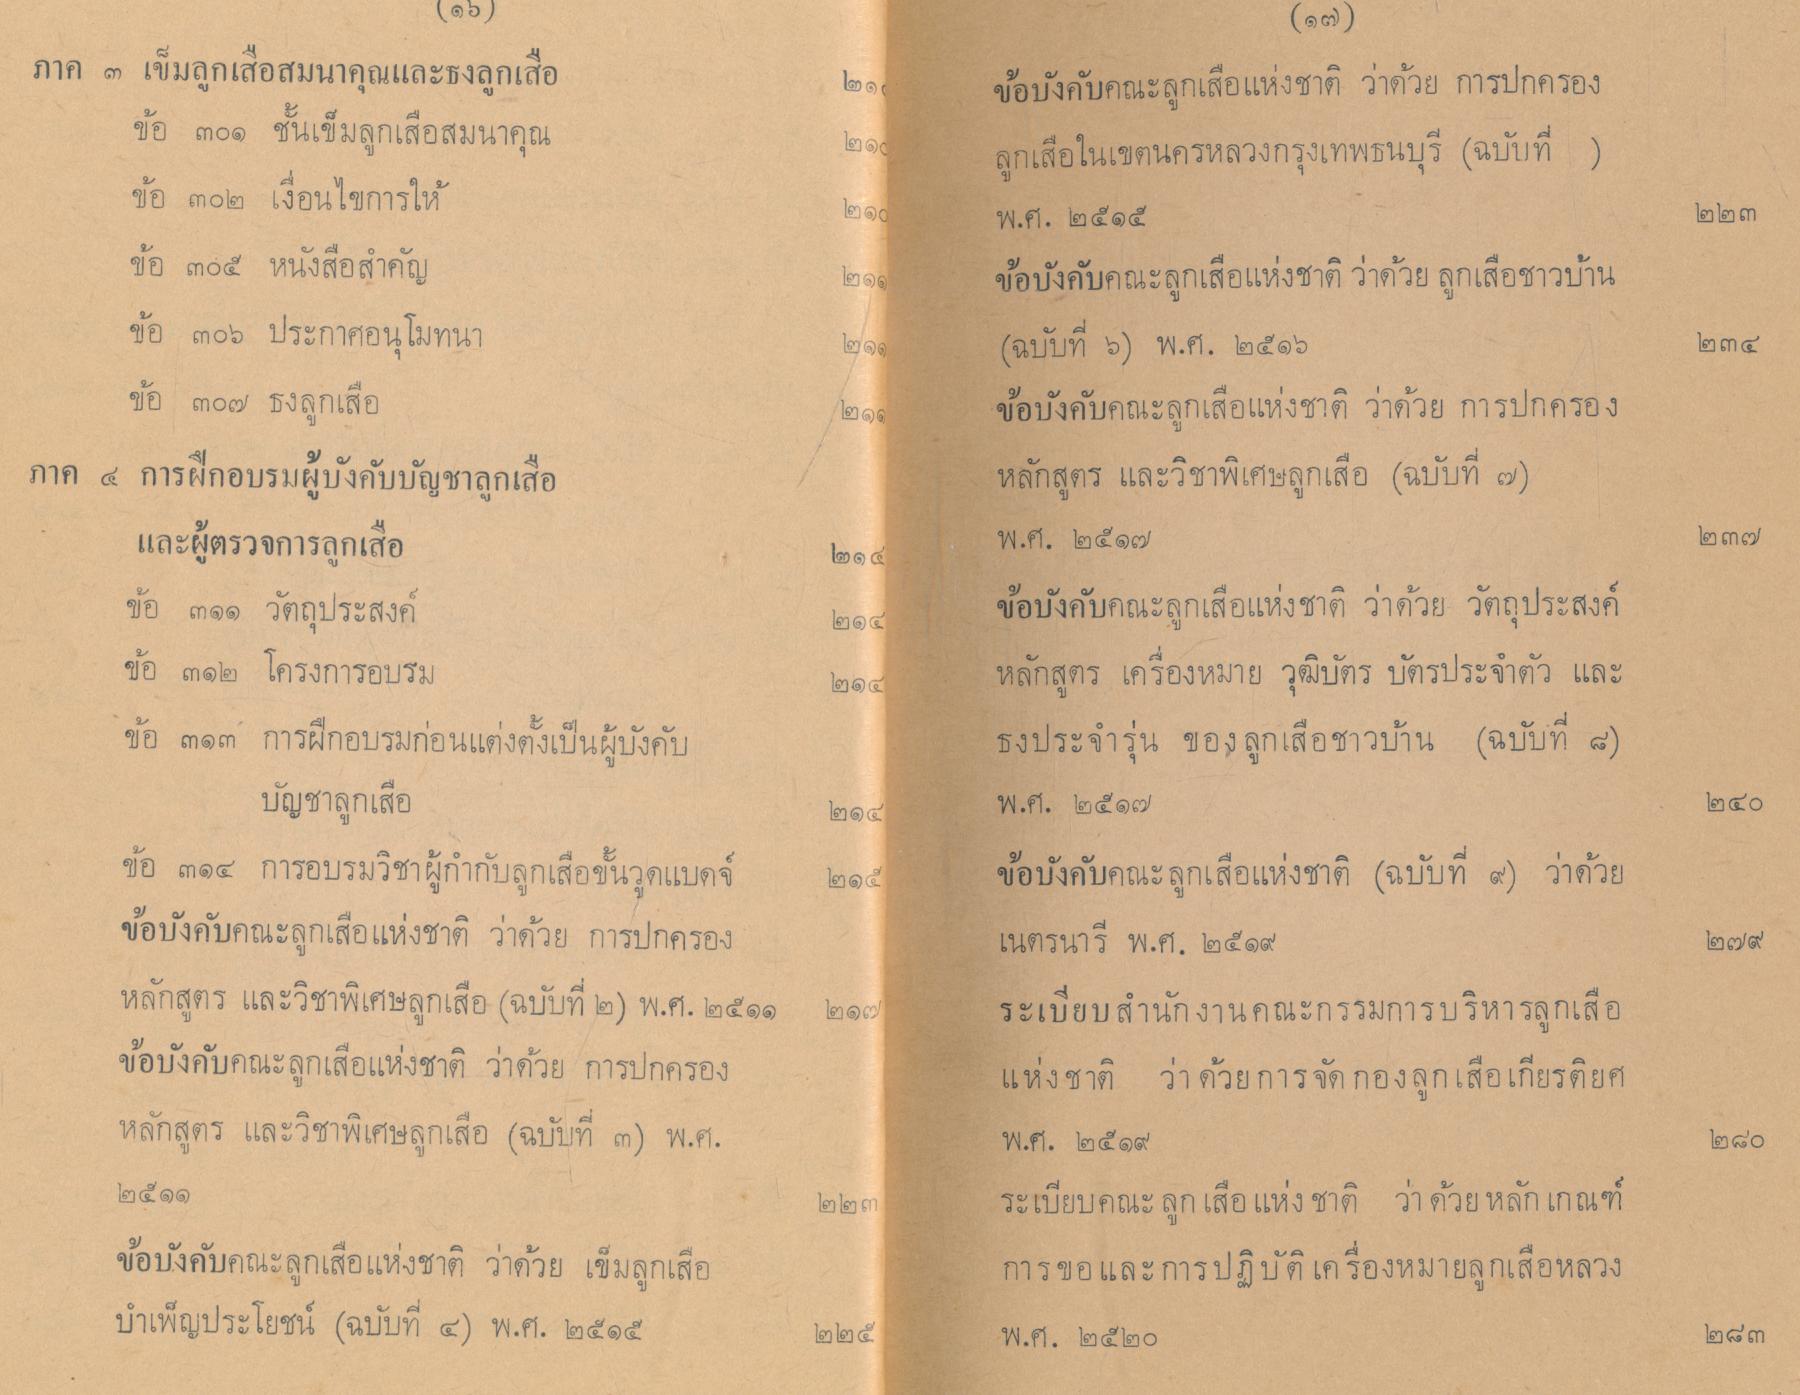 (๑๖)
ภาค ๓ เข็มลูกเสือสมนาคุณและธงลูกเสือ ๒๑๐
ข้อ ๓๐๑ ชั้นเข็มลูกเสือสมนาคุณ ๒๑๐
ข้อ ๓๐๒ เงื่อนไขการให้ ๒๑๐
ข้อ ๓๐๕ หนังสือสำคัญ ๒๑๑
ข้อ ๓๐๖ ประกาศอนุโมทนา ๒๑๑
ข้อ ๓๐๗ ธงลูกเสือ ๒๑๑
ภาค ๔ การฝึกอบรมผู้บังคับบัญชาลูกเสือ
และผู้ตรวจการลูกเสือ ๒๑๔
ข้อ ๓๑๑ วัตถุประสงค์ ๒๑๔
ข้อ ๓๑๒ โครงการอบรม ๒๑๔
ข้อ ๓๑๓ การฝึกอบรมก่อนแต่งตั้งเป็นผู้บังคับ
บัญชาลูกเสือ ๒๑๔
ข้อ ๓๑๔ การอบรมวิชาผู้กำกับลูกเสือขั้นวูดแบดจ์ ๒๑๕
ข้อบังคับคณะลูกเสือแห่งชาติ ว่าด้วย การปกครอง
หลักสูตร และวิชาพิเศษลูกเสือ (ฉบับที่ ๒) พ.ศ. ๒๕๑๑ ๒๑๗
ข้อบังคับคณะลูกเสือแห่งชาติ ว่าด้วย การปกครอง
หลักสูตร และวิชาพิเศษลูกเสือ (ฉบับที่ ๓) พ.ศ.
๒๕๑๑ ๒๒๓
ข้อบังคับคณะลูกเสือแห่งชาติ ว่าด้วย เข็มลูกเสือ
บำเพ็ญประโยชน์ (ฉบับที่ ๔) พ.ศ. ๒๕๑๕ ๒๒๕
(๑๗)
ข้อบังคับคณะลูกเสือแห่งชาติ ว่าด้วย การปกครอง
ลูกเสือในเขตนครหลวงกรุงเทพธนบุรี (ฉบับที่ )
พ.ศ. ๒๕๑๕ ๒๒๓
ข้อบังคับคณะลูกเสือแห่งชาติ ว่าด้วย ลูกเสือชาวบ้าน
(ฉบับที่ ๖) พ.ศ. ๒๕๑๖ ๒๓๔
ข้อบังคับคณะลูกเสือแห่งชาติ ว่าด้วย การปกครอง
หลักสูตร และวิชาพิเศษลูกเสือ (ฉบับที่ ๗)
พ.ศ. ๒๕๑๗ ๒๓๗
ข้อบังคับคณะลูกเสือแห่งชาติ ว่าด้วย วัตถุประสงค์
หลักสูตร เครื่องหมาย วุฒิบัตร บัตรประจำตัว และ
ธงประจำรุ่น ของลูกเสือชาวบ้าน (ฉบับที่ ๘)
พ.ศ. ๒๕๑๗ ๒๔๐
ข้อบังคับคณะลูกเสือแห่งชาติ (ฉบับที่ ๙) ว่าด้วย
เนตรนารี พ.ศ. ๒๕๑๙ ๒๗๙
ระเบียบสำนักงานคณะกรรมการบริหารลูกเสือ
แห่งชาติ ว่าด้วยการจัดกองลูกเสือเกียรติยศ
พ.ศ. ๒๕๑๙ ๒๘๐
ระเบียบคณะลูกเสือแห่งชาติ ว่าด้วยหลักเกณฑ์
การขอและการปฏิบัติเครื่องหมายลูกเสือหลวง
พ.ศ. ๒๕๒๐ ๒๘๓